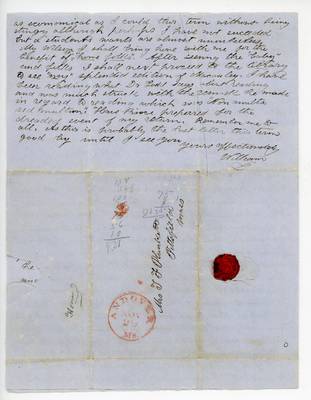 as economical as I could this term without being
stingy although perhaps I have not succeeded
but a students wants are almost innumerable
My I shall bring home with me for the
benefit of "home folks". After seeing the "baby"
and folks I shall next hurry to the library
to see "my" splendid edition of Macaulay. I have
been reading what Dr says about reading
and was much struck with the remark he made
in regard to reading which was "Non multa
sed multum". Have prepared for the
dreadful event of my return. Remember me to
all. As this is probably the last letter this term
good by until I see you
Yours affectionately
William
Mrs T F Plunkett
Pittsfield
Mass
ANDOVER
NOV
MS